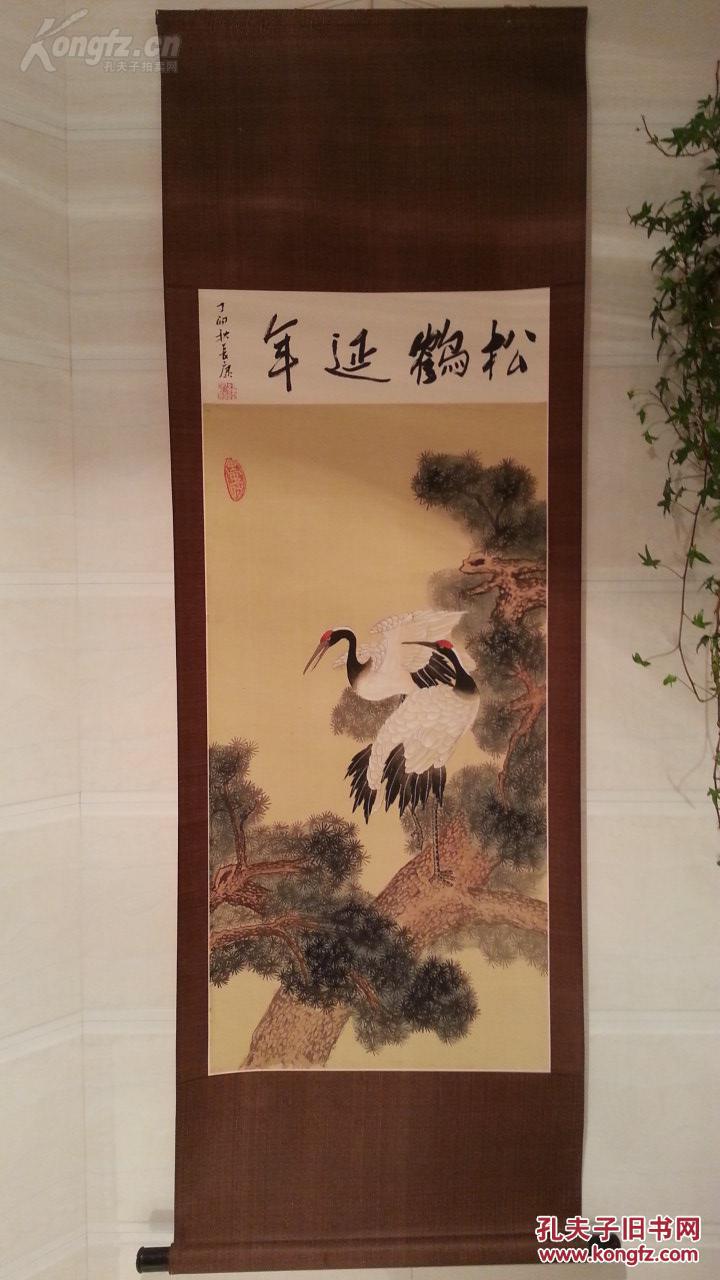 Kongfz.cn
孔夫子拍卖网
松鹤延年
丁卯秋長康
孔夫子旧书网
www.kongfz.com